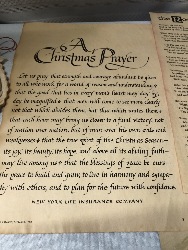 A
Christmas Prayer
Let us pray that strength and courage abundant be given
to all who work for a world of reason and understanding •
that the good that lies in every man's heart may day by
day be magnified • that men will come to see more clearly
not that which divides them, but that which unites them •
that each hour may bring us closer to a final victory, not
of nation over nation, but of man over his own evils and
weaknesses • that the true spirit of this Christmas Season-
its joy, its beauty, its hope, and above all its abiding faith-
may live among us • that the blessings of peace be ours-
the peace to build and grow, to live in harmony and sympa-
thy with others, and to plan for the future with confidence.
NEW YORK LIFE INSURANCE COMPANY